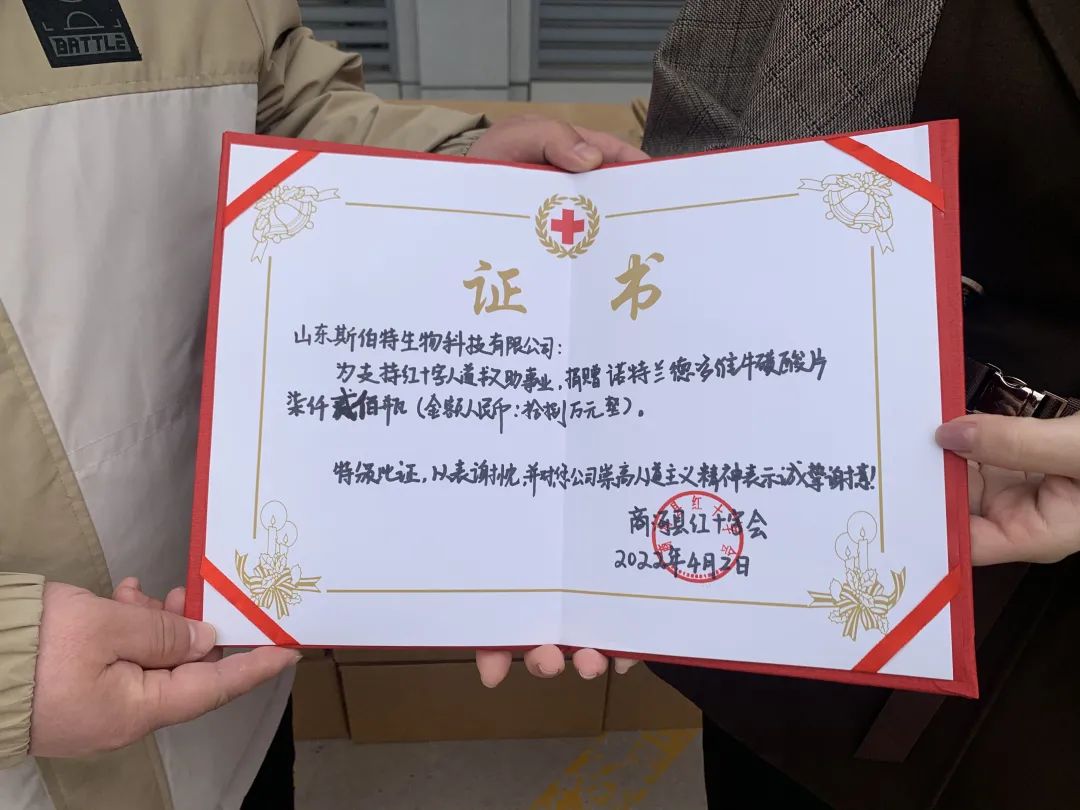 BATTLE
证 书
山东斯伯特生物科技有限公司:
为支持红十字人道救助事业,捐赠诺特兰德多维牛磺酸片
柒仟贰佰瓶(金额人民币:拾捌万元整)。
特颁此证,以表谢忱,并对您公司崇高人道主义精神表示诚挚谢意!
商河县红十字会
2022年4月2日